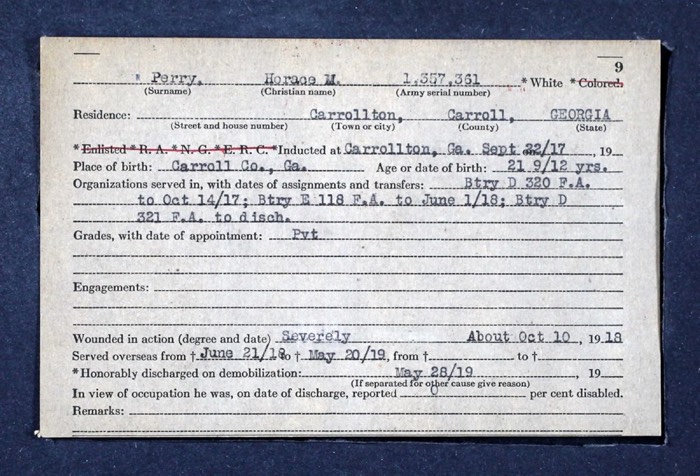 9
Perry, Horace M. 1,357,361 * White * Colored.
(Surname) (Christian name) (Army serial number)
Residence: Carrollton, Carroll, GEORGIA
(Street and house number) (Town or city) (County) (State)
* Enlisted * R. A. * N. G. * E. R. C. * Inducted at Carrollton, Ga. Sept 22/17, 19
Place of birth: Carroll Co., Ga. Age or date of birth: 21 9/12 yrs.
Organizations served in, with dates of assignments and transfers: Btry D 320 F.A.
to Oct 14/17; Btry E 118 F.A. to June 1/18; Btry D
321 F.A. to disch.
Grades, with date of appointment: Pvt
Engagements:
Wounded in action (degree and date) Severely About Oct 10, 1918
Served overseas from † June 21/18 to † May 20/19, from † to †
* Honorably discharged on demobilization: May 28/19, 19
(If separated for other cause give reason)
In view of occupation he was, on date of discharge, reported 0 per cent disabled.
Remarks: